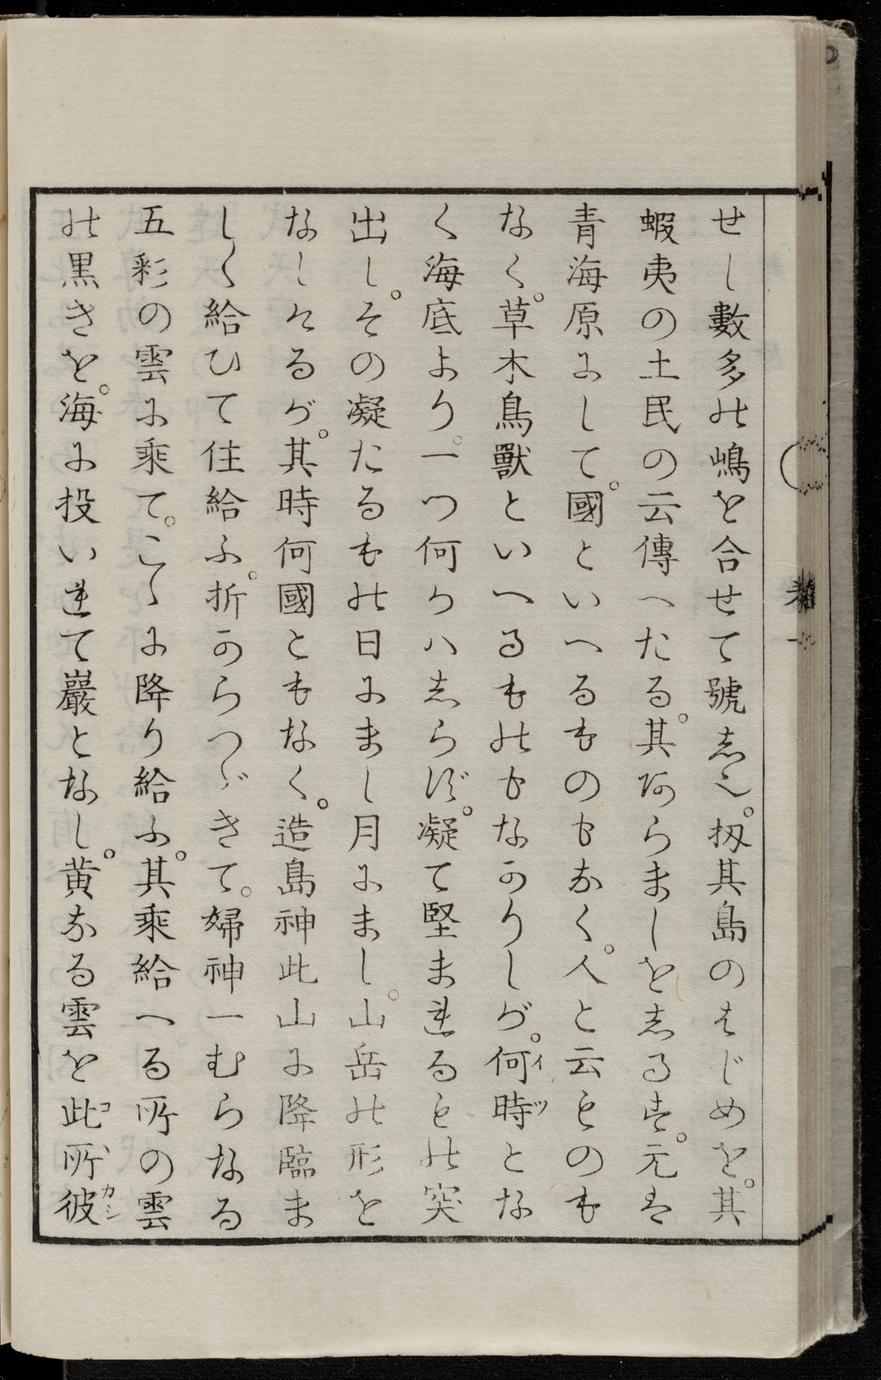 せし數多の嶋を合せて號しへ。扨其島のはじめを。其
蝦夷の土民の云傳へたる。其あらましをしるす。元は
青海原にして。國といへるものもなく。人と云ものも
なく。草木鳥獸といへるものもなかりしが。何時イツとな
く海底より。一つ何かハしらず。凝て堅まれるもの突
出し。その凝たるもの日にまし月にまし。山岳の形を
なしけるが。其時何國ともなく。造島神此山に降臨ま
しく給ひて住給ふ。折からつゞきて。婦神一むらなる
五彩の雲に乘て。こゝに降り給ふ。其乘給へる所の雲
の黒きを。海に投いれて巖となし。黄なる雲を此所コヽ彼カシ
巻一